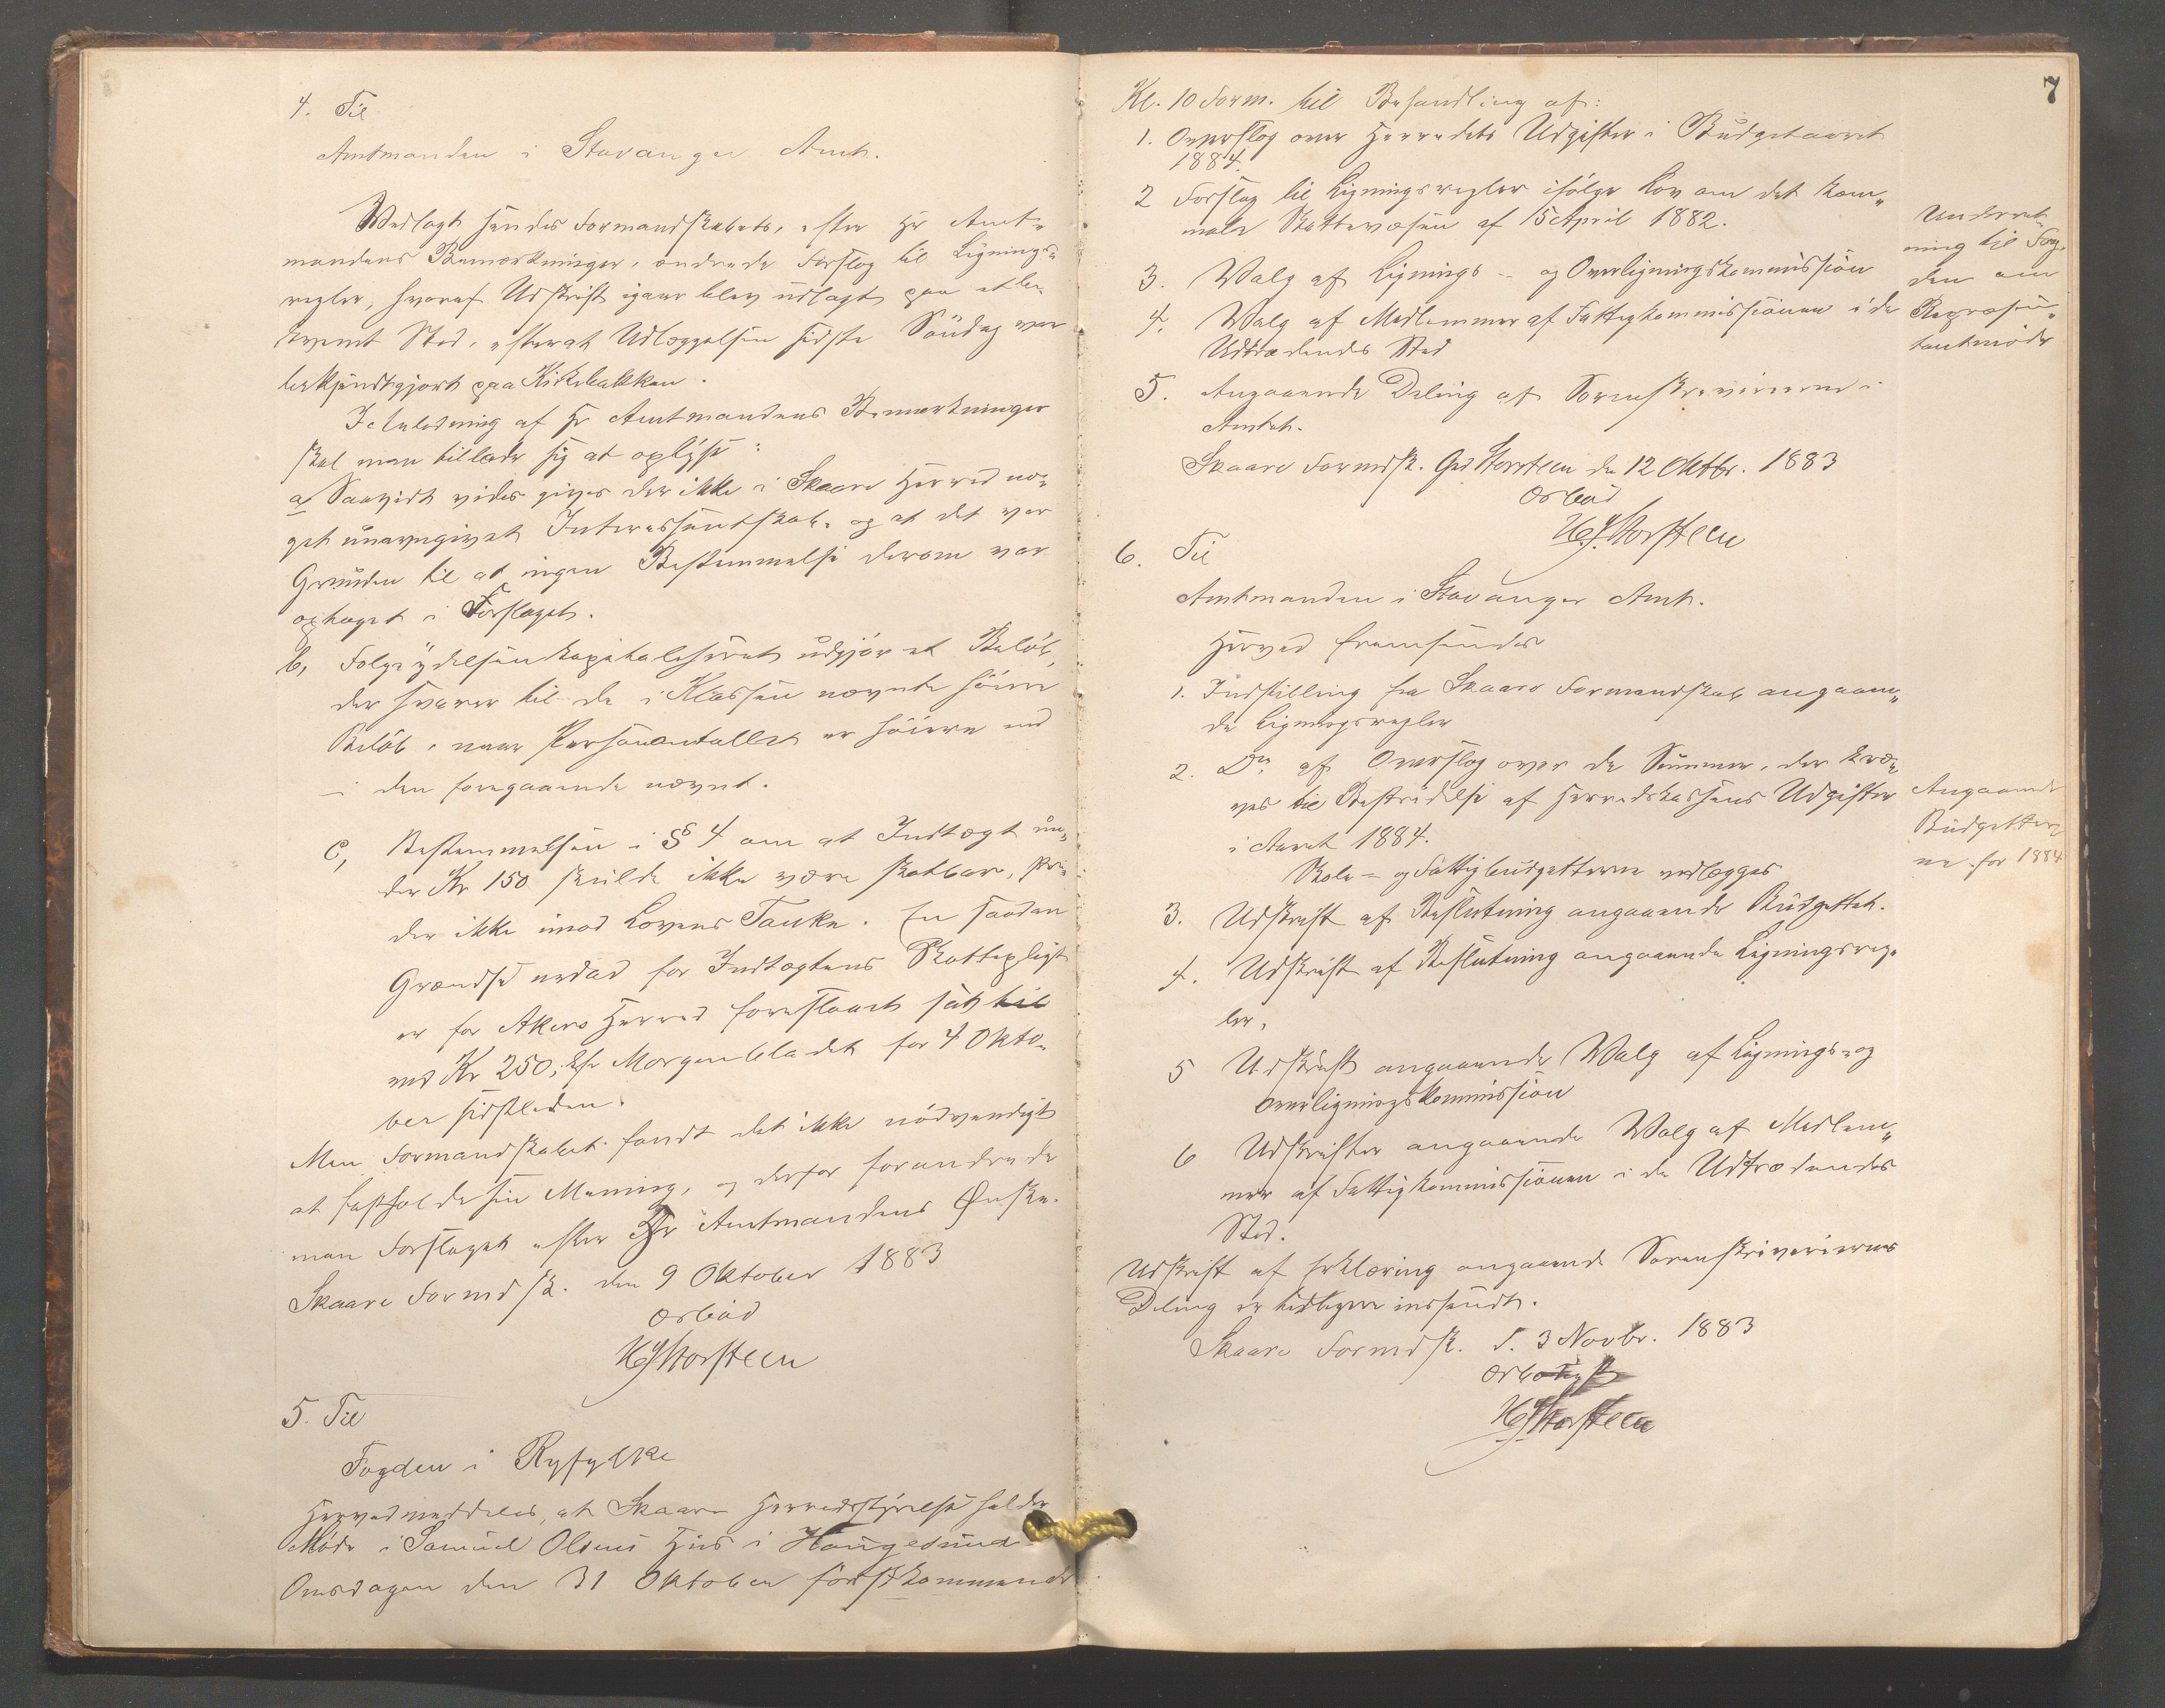 4. Til
Amtmanden i Stavanger Amt.
Vedlagt sendes Formandskabets, efter Hr Amt-
mandens Bemærkninger, ændrede Forslag til Lignings-
regler, hvoraf Udskrift igaar blev udlagt paa et be-
kvemt Sted, efterat Udlæggelsen sidste Söndag var
bekjendtgjort paa Kirkebakken.
I Anledning af Hr Amtmandens Bemærkninger
skal man tillade sig at oplyse:
a, Saavidt vides gives der ikke i Skaare Herred no-
get unavngivet Interessentskab, og at det var
Grunden til at ingen Bestemmelse derom var
optaget i Forslaget.
b, Folgeydelsen kapitaliseret udgjör et Belöb,
der svarer til de i Klassen nævnte höiere
Belöb, naar Personantallet er höiere end
i den foregaaende nævnt.
c, Bestemmelsen i § 4 om at Indtægt un-
der Kr 150 skulde ikke være skatbar, stri-
der ikke imod Lovens Tanke. En saadan
Grændse nedad for Indtægtens Skattepligt
er for Akers Herred foreslaaet sat til
ved Kr 250, Efr Morgenbladet for 4 Okto-
ber sidstleden.
Men Formandskabet fandt det ikke nödvendigt
at fastholde sin Mening, og derfor forandrede
man Forslaget efter Hr Amtmandens Ønske.
Skaare Formdsk. den 9 Oktober 1883
Ærbød
HGStorsteen
5. Til
Fogden i Ryfylke
Herved meddeles, at Skaare Herredsstyrelse holder
Möde i Samuel Olsens Hus i Haugesund
Onsdagen den 31 Oktober förstkommende
7
Kl. 10 Form. til Behandling af:
1. Overslag over Herredets Udgifter i Budgetaaret
1884.
2 Forslag til Ligningsregler ifölge Lov om det kom-
munale Skattevæsen af 15 April 1882.
3. Valg af Lignings- og Overligningskommission
4. Valg af Medlemmer af Fattigkommissionen i de
Udtrædendes Sted
5. Angaaende Deling af Sorenskriverierne i
Amtet.
Underret-
ning til Fog-
den om
Repræsen-
tantmöde
Skaare Formdsk. Grd Storsteen den 12 Oktbr. 1883
Ærbød
HGStorsteen
6. Til
Amtmanden i Stavanger Amt.
Herved fremsendes
1. Indstilling fra Skaare Formandskab angaaen-
de Ligningsregler
2. Do. af Overslag over de Summer, der kræ-
ves til Bestridelse af Herredskassens Udgifter
i Aaret 1884.
Skole- og Fattigbudgetterne vedlægges
Angaaende
Budgetter-
ne for 1884
3. Udskrift af Beslutning angaaende Budgettet.
4. Udskrift af Beslutning angaaende Ligningsreg-
ler.
5 Udskrift angaaende Valg af Lignings- og
Overligningskommission
6 Udskrifter angaaende Valg af Medlem-
mer af Fattigkommissionen i de Udtrædendes
Sted.
Udskrift af Erklæring angaaende Sorenskriveriernes
Deling er tidligere indsendt.
Skaare Formdsk. d. 3 Novbr. 1883
Ærbødigst
HGStorsteen